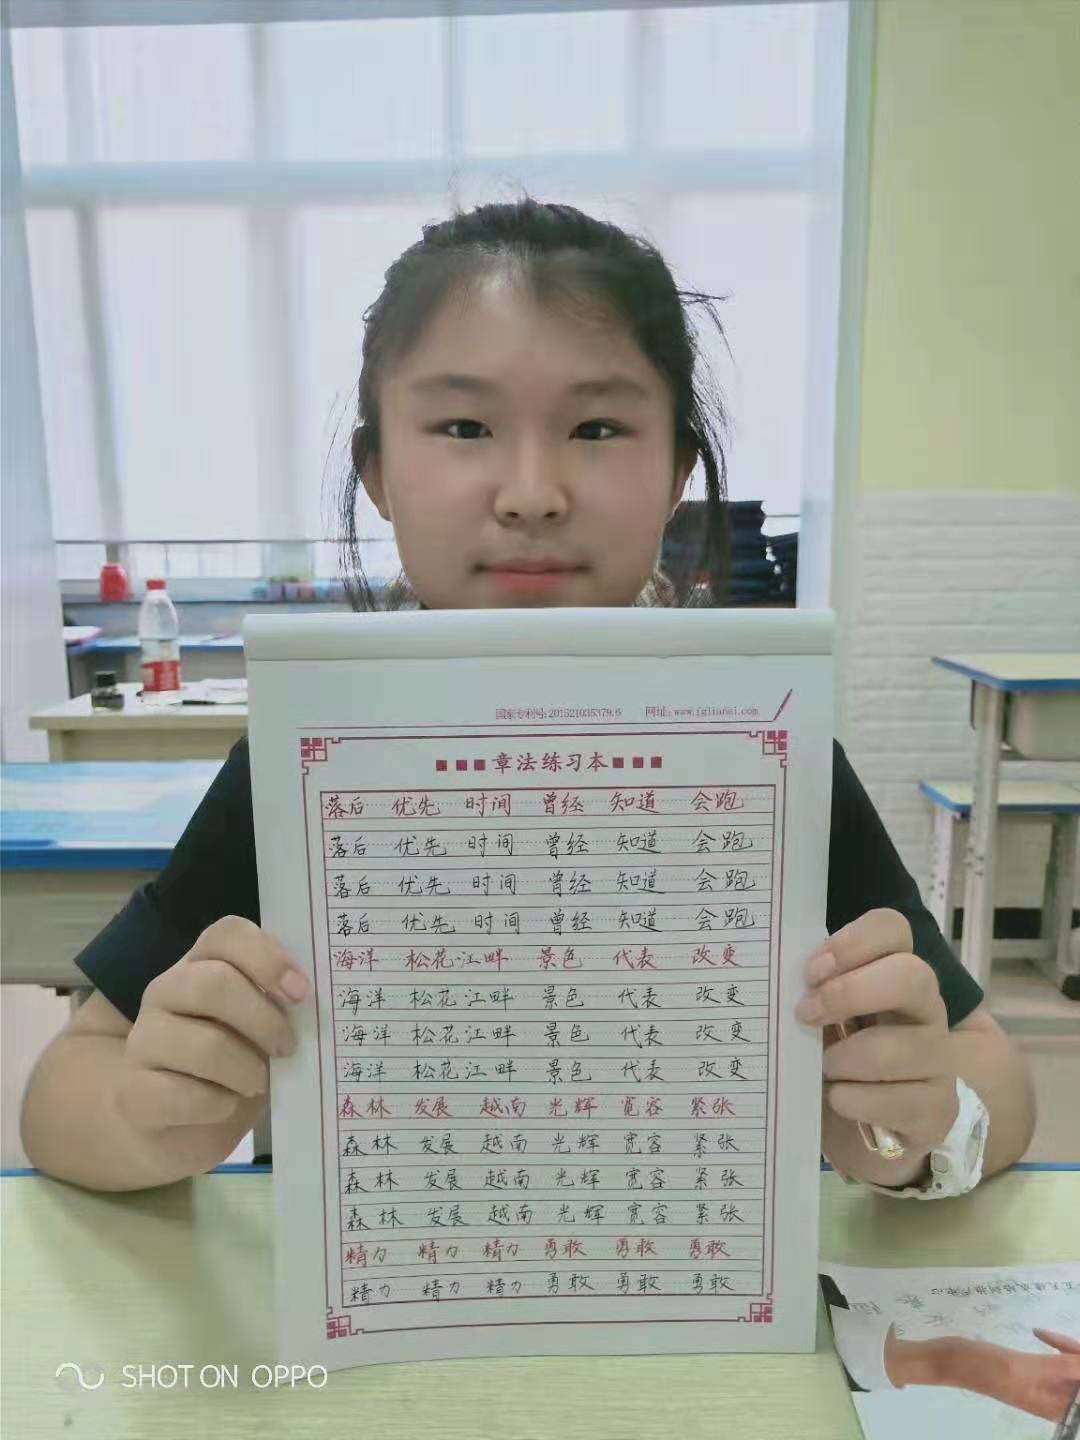 国家专利号:201521035379.6 网址:www.fglianzi.com
章法练习本
落后 优先 时间 曾经 知道 会跑
落后 优先 时间 曾经 知道 会跑
落后 优先 时间 曾经 知道 会跑
落后 优先 时间 曾经 知道 会跑
海洋 松花江畔 景色 代表 改变
海洋 松花江畔 景色 代表 改变
海洋 松花江畔 景色 代表 改变
海洋 松花江畔 景色 代表 改变
森林 发展 越南 光辉 宽容 紧张
森林 发展 越南 光辉 宽容 紧张
森林 发展 越南 光辉 宽容 紧张
森林 发展 越南 光辉 宽容 紧张
精力 精力 精力 勇敢 勇敢 勇敢
精力 精力 精力 勇敢 勇敢 勇敢
SHOT ON OPPO